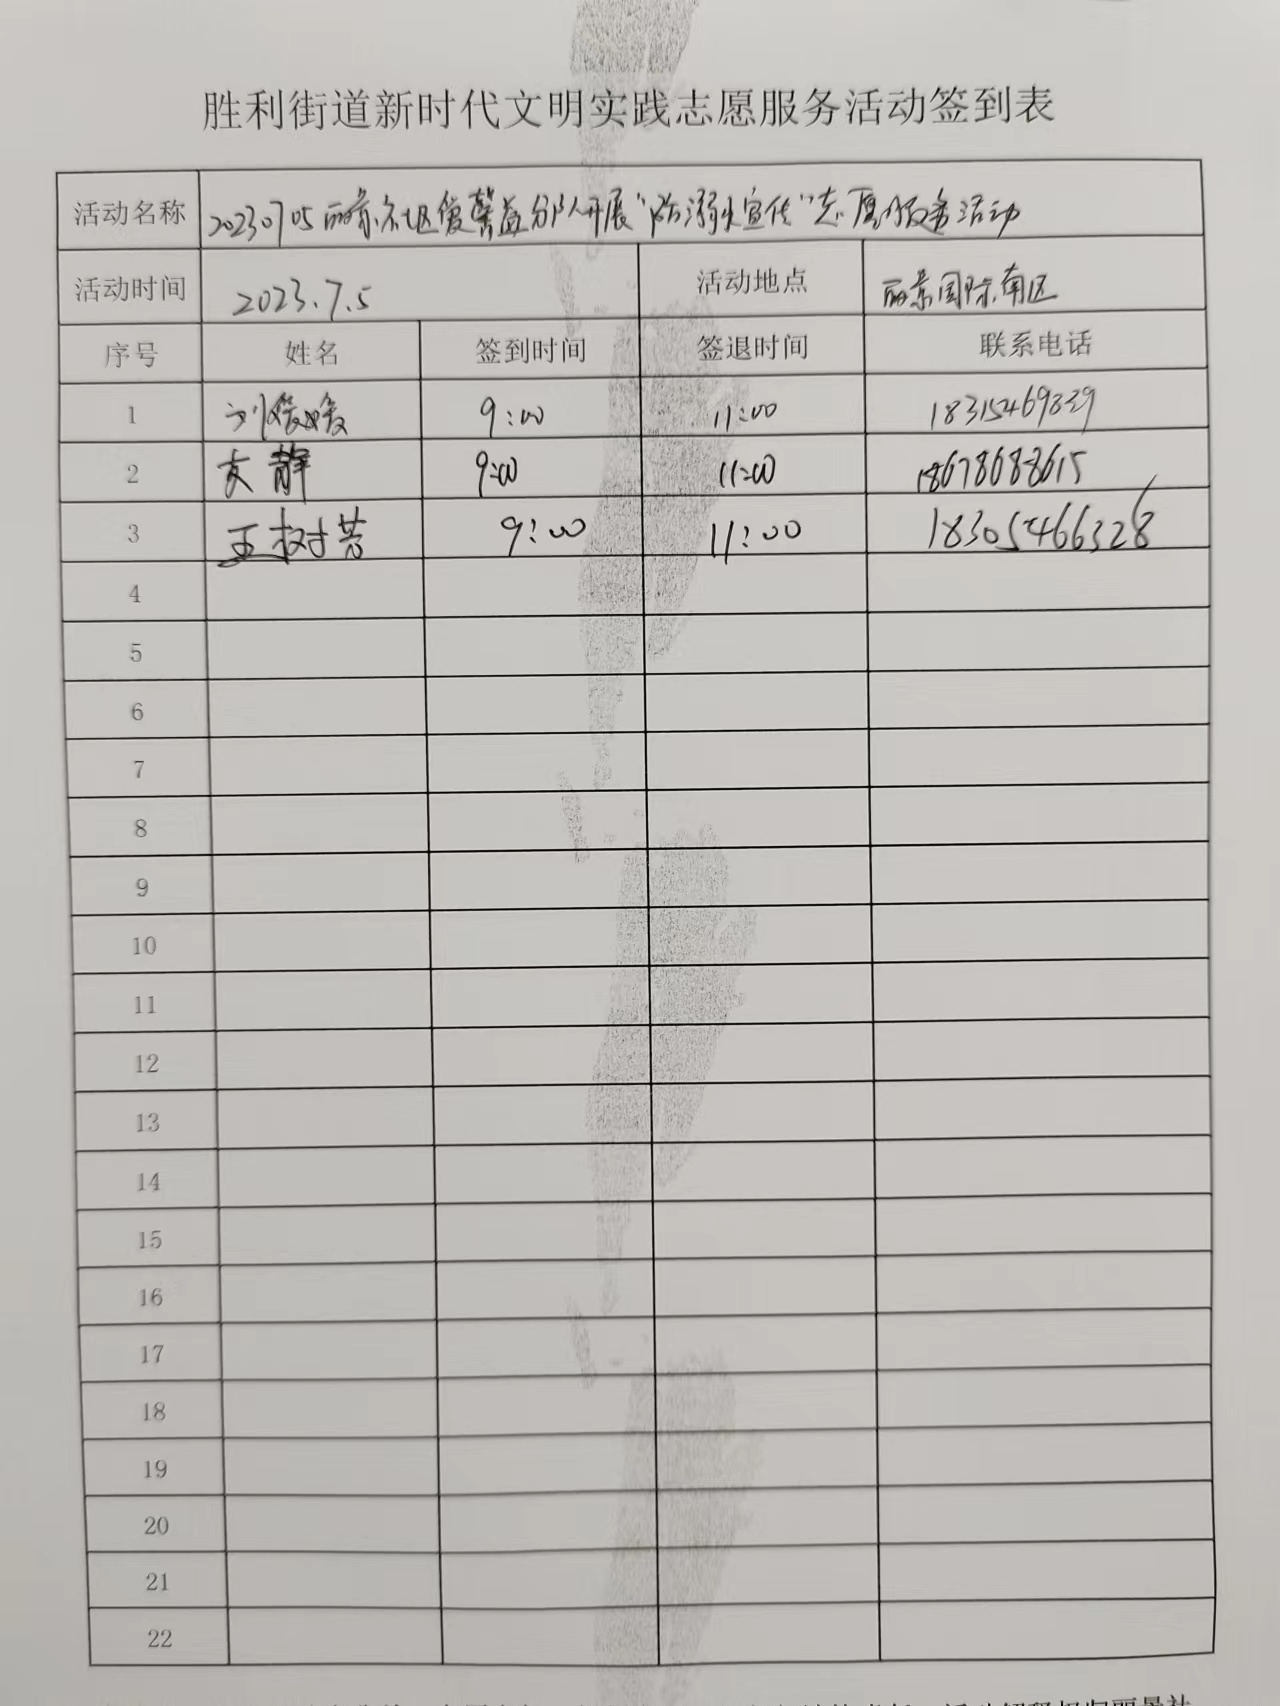 胜利街道新时代文明实践志愿服务活动签到表
活动名称 20230705丽景社区爱馨益分队开展“防溺水宣传”志愿服务活动
活动时间 2023.7.5 活动地点 丽景国际南区
序号 姓名 签到时间 签退时间 联系电话
1 刘媛媛 9:00 11:00 18315469339
2 支静 9:00 11:00 18678688615
3 王树芳 9:00 11:00 18305466328
4
5
6
7
8
9
10
11
12
13
14
15
16
17
18
19
20
21
22